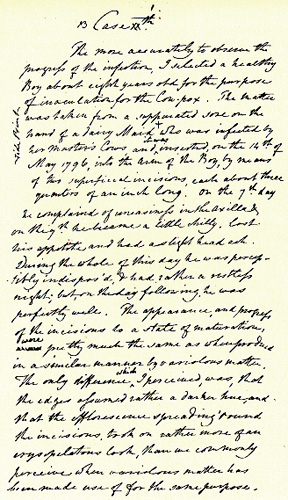 Case th
The more accurately to observe the
progress of the infection, I selected a healthy
Boy about eight years old for the purpose
of inoculation for the Cow-pox. The matter
was taken from a suppurated sore on the
hand of a dairy Maid who was infected by
her Master's Cows and inserted, on the 14th of
May 1796, into the Arm of the Boy, by means
of two superficial incisions, each about three
quarters of an inch long. On the 7th day
he complained of uneasiness in the axilla &
on the 9th he became a little chilly, lost
his appetite and had a slight head ach.
During the whole of this day he was percep-
tibly indispos'd, & had rather a restless
night; but on the day following, he was
perfectly well. The appearance, and progress
of the incisions to a state of maturation,
were pretty much the same as when produced
in a similar manner by variolous matter.
The only difference, which I perceived, was, that
the edges assumed rather a darker hue, and
that the efflorescence spreading round
the incisions, took on rather more of an
erysipelatous look, than we commonly
perceive when variolous matter has
been made use of for the same purpose.